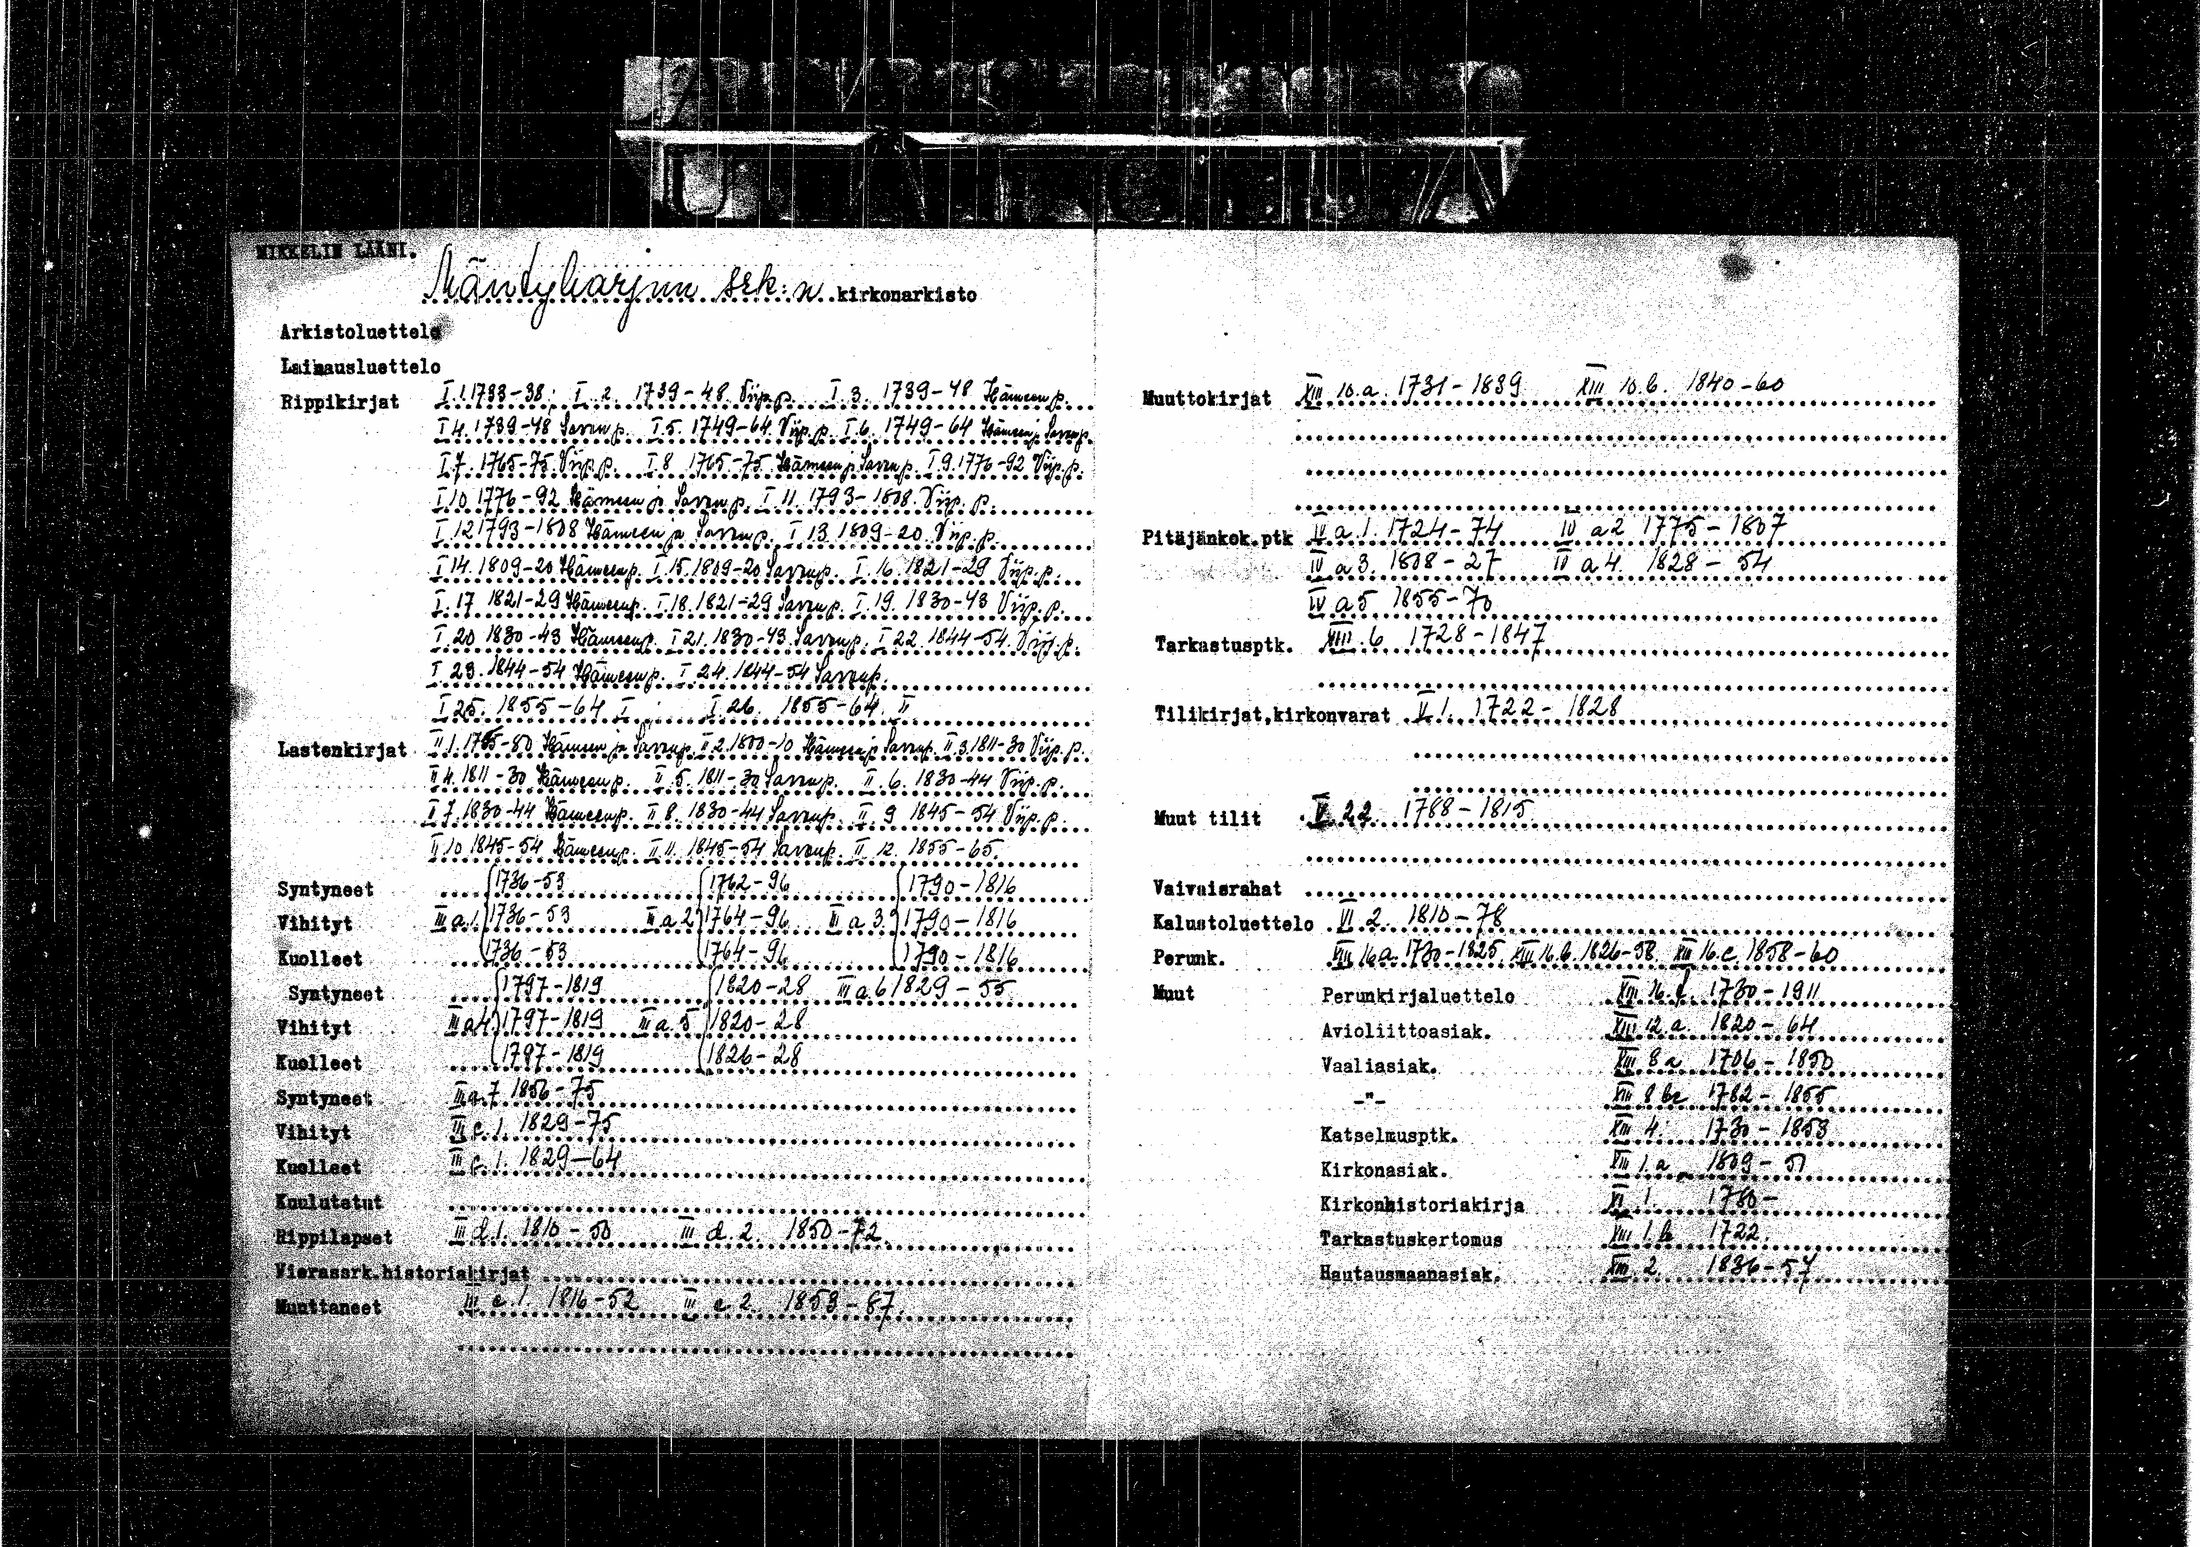 MIKKELIN LÄÄNI.
Mäntyharjun srk:n kirkonarkisto
Arkistoluettelo
Lainausluettelo
Rippikirjat I.1.1733-38; I.2. 1739-48 Viip.p. I.3. 1739-48 Hämeenp.
I 4. 1739-48 Savonp. I.5. 1749-64 Viip.p. I.6. 1749-64 Hämeen ja Savonp.
I 7. 1765-75 Viip.p. I 8. 1765-75 Hämeen ja Savonp. I 9. 1776-92 Viip.p.
I 10 1776-92 Hämeen ja Savonp. I 11. 1793-1808. Viip.p.
I 12 1793-1808 Hämeen ja Savonp. I 13 1809-20. Viip.p.
I 14. 1809-20 Hämeenp. I.15. 1809-20 Savonp. I. 16. 1821-29 Viip.p.
I. 17 1821-29 Hämeenp. I.18. 1821-29 Savonp. I.19. 1830-43 Viip.p.
I 20 1830-43 Hämeenp. I 21. 1830-43 Savonp. I 22. 1844-54. Viip.p.
I 23. 1844-54 Hämeenp. I 24. 1844-54 Savonp.
I 25. 1855-64 I ; I 26. 1855-64. II
Lastenkirjat II 1. -80 Hämeen ja Savonp. II 2. 1800-10 Hämeen ja Savonp. II.3. 1811-30 Viip.p.
II 4. 1811-30 Hämeenp. II.5. 1811-30 Savonp. II.6. 1830-44 Viip.p.
II 7. 1830-44 Hämeenp. II 8. 1830-44 Savonp. II 9 1845-54 Viip.p.
II 10 1845-54 Hämeenp. II 11. 1845-54 Savonp. II 12. 1855-65.
Syntyneet 1736-53 1762-96 1790-1816
Vihityt III a.1. 1736-53 III a 2 1764-96 III a 3. 1790-1816
Kuolleet 1736-53 1764-96 1790-1816
Syntyneet 1797-1819 1820-28 III a.6 1829-55
Vihityt III a 4. 1797-1819 III a.5 1820-28
Kuolleet 1797-1819 1826-28
Syntyneet III a.7 1856-75
Vihityt III c.1. 1829-75
Kuolleet III 1. 1829-64
Kuulutetut
Rippilapset III d.1. 1810-50 III d.2. 1850-72.
Vierassrk.historiakirjat
Muuttaneet III 1. 1816-52 III 2. 1853-87.
Muuttokirjat XIII 10.a. 1731-1839 XIII 10.b. 1840-60
Pitäjänkok.ptk IV a.1. 1724-74 IV a 2 1775-1807
IV a 3. 1808-27 IV a 4. 1828-54
IV a 5 1855-70
Tarkastusptk. XIII.6 1728-1847
Tilikirjat,kirkonvarat V 1. 1722-1828
Muut tilit V 22. 1788-1815
Vaivaisrahat
Kalustoluettelo VI 2. 1810-78
Perunk. XIII 16 a. 1730-1825. XIII 16.b. 1826-58. XIII 16.c. 1858-60
Muut Perunkirjaluettelo XIII 16. 1730-1911
Avioliittoasiak. XIII 12.a. 1820-64
Vaaliasiak. XIII 8 a 1706-1850
-"- XIII 8 bc 1782-1855
Katselmusptk. XIII 4. 1730-1853
Kirkonasiak. XIII 1.a 1809-51
Kirkonhistoriakirja XI 1. 1780-
Tarkastuskertomus XIII 1.b 1722.
Hautausmaanasiak. XIII 2. 1836-57